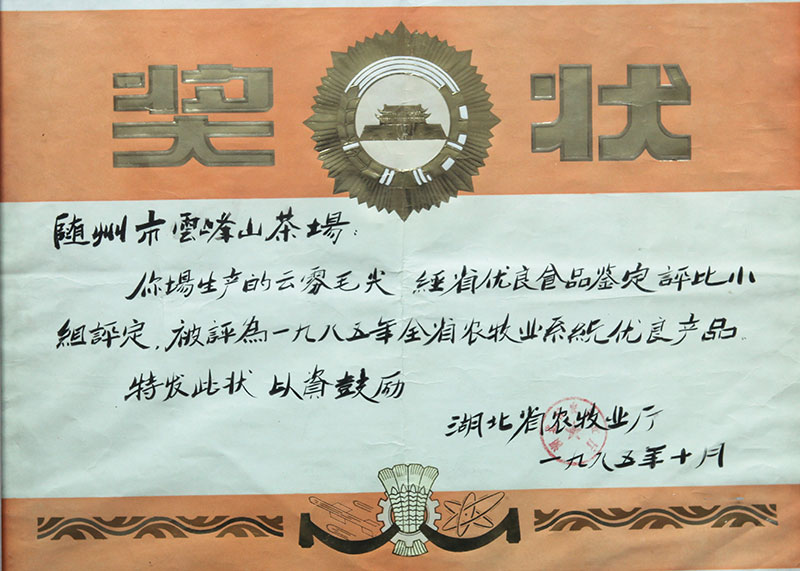 奖状
随州市雲峰山茶場：
你場生产的云雾毛尖 經省优良食品鉴定評比小
组評定，被評為一九八五年全省农牧业系统优良产品。
特发此状 以資鼓励
湖北省农牧业厅
一九八五年十月